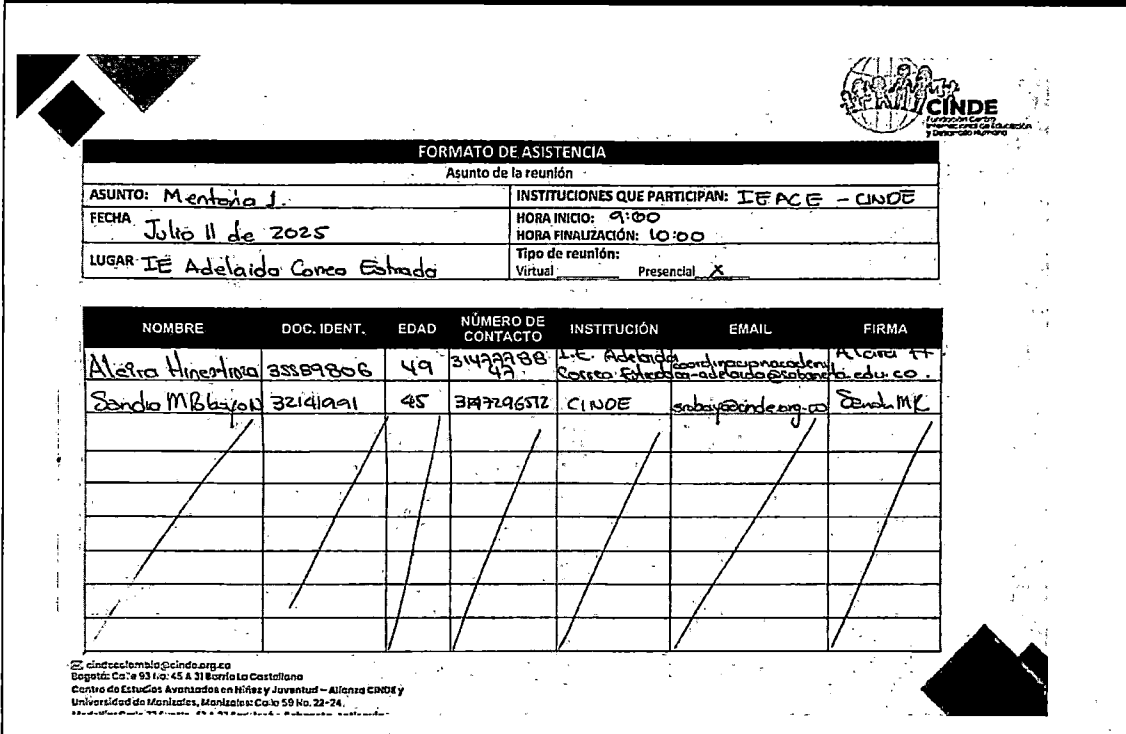 CINDE
Fundación Centro
Internacional de Educación
y Desarrollo Humano
FORMATO DE ASISTENCIA
Asunto de la reunión
ASUNTO: Mentoría 1.
INSTITUCIONES QUE PARTICIPAN: IEACE - CINDE
FECHA Julio 11 de 2025
HORA INICIO: 9:00
HORA FINALIZACIÓN: 10:00
LUGAR IE Adelaida Correa Estrada
Tipo de reunión:
Virtual Presencial X
NOMBRE DOC. IDENT. EDAD NÚMERO DE CONTACTO INSTITUCIÓN EMAIL FIRMA
Alcira Hinestroza 35589806 49 3147778847 I.E. Adelaida Correa Estrada coordinacionacademica-adelaida@sabaneta.edu.co. Alcira H
Sandra 32141991 45 CINDE Sandra
cindecolombia@cinde.org.co
Bogotá: Calle 93 No. 45 A 31 Barrio La Castellana
Centro de Estudios Avanzados en Niñez y Juventud – Alianza CINDE y
Universidad de Manizales, Manizales: Calle 59 No. 22-24.